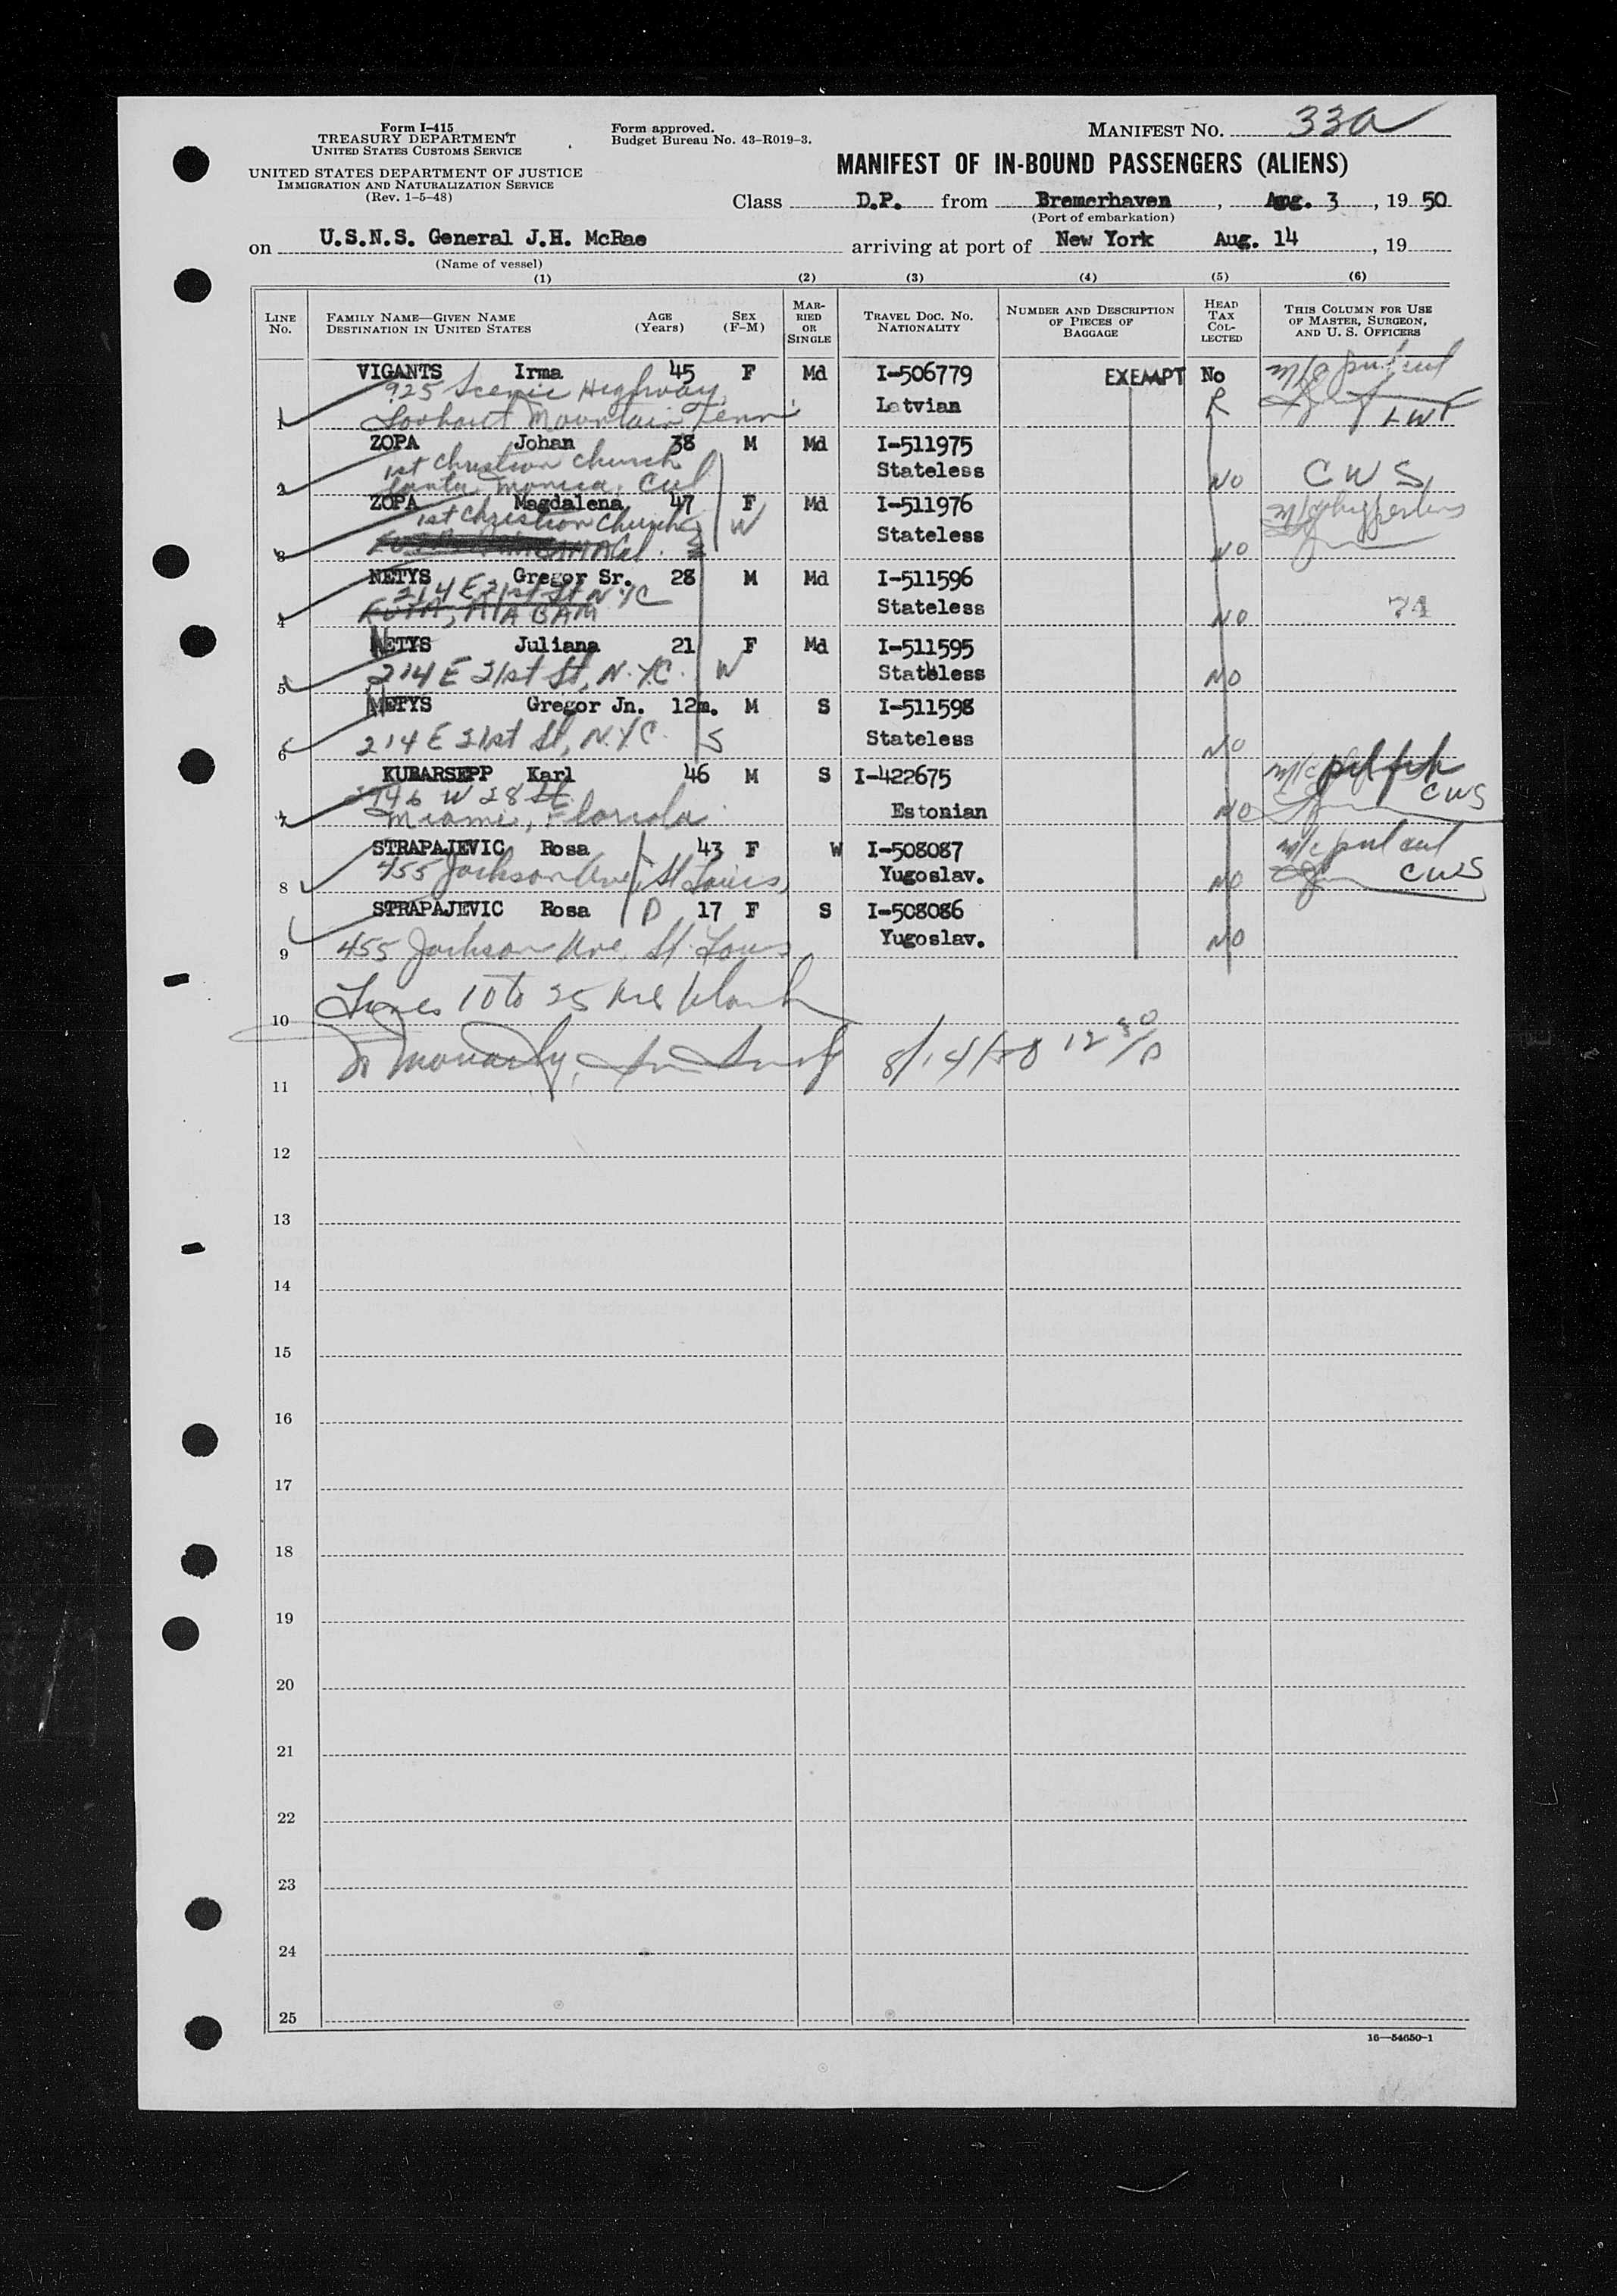 Form I-415
TREASURY DEPARTMENT
UNITED STATES CUSTOMS SERVICE
UNITED STATES DEPARTMENT OF JUSTICE
IMMIGRATION AND NATURALIZATION SERVICE
(Rev. 1-5-48)
Form approved.
Budget Bureau No. 43-R019-3.
MANIFEST NO. 33a
MANIFEST OF IN-BOUND PASSENGERS (ALIENS)
Class D.P. from Bremerhaven, Aug. 3, 19 50
(Port of embarkation)
on U.S.N.S. General J.H. McRae arriving at port of New York Aug. 14, 19
(Name of vessel)
(1) (2) (3) (4) (5) (6)
LINE No.
FAMILY NAME—GIVEN NAME DESTINATION IN UNITED STATES
AGE (Years)
SEX (F-M)
MARRIED OR SINGLE
TRAVEL DOC. NO. NATIONALITY
NUMBER AND DESCRIPTION OF PIECES OF BAGGAGE
HEAD TAX COLLECTED
THIS COLUMN FOR USE OF MASTER, SURGEON, AND U. S. OFFICERS
VIGANTS Irma 45 F Md I-506779 EXEMPT No
925 Scenic Highway Latvian R
1 Lookout Mountain, Tenn LWF
ZOPA Johan 38 M Md I-511975
1st Christian Church Stateless
2 Santa Monica, Cal NO CWS
ZOPA Magdalena 47 F Md I-511976
1st Christian Church W Stateless
3 Cal. NO
NETYS Gregor Sr. 28 M Md I-511596
214 E 21st St N.Y.C Stateless
4 NO 74
NETYS Juliana 21 F Md I-511595
5 214 E 21st St, N.Y.C. W Stateless NO
NETYS Gregor Jn. 12m. M S I-511598
6 214 E 21st St, N.Y.C. S Stateless NO
KUBARSEPP Karl 46 M S I-422675
W 28 St. Estonian CWS
7 Miami, Florida NO
STRAPAJEVIC Rosa 43 F W I-508087
8 455 Jackson Ave, St Louis, Yugoslav. NO CWS
STRAPAJEVIC Rosa D 17 F S I-508086
9 455 Jackson Ave, St. Louis Yugoslav. NO
10 Lines 10 to 25 are blank
11 8/14/50 12 30/P
12
13
14
15
16
17
18
19
20
21
22
23
24
25
16—54650-1